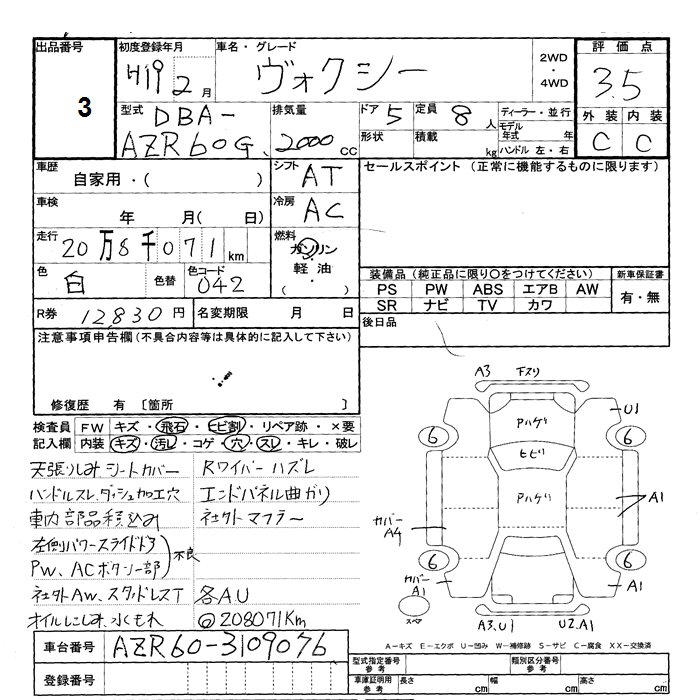 出品番号
3
初度登録年月
H19 2月
車名・グレード
ヴォクシー
2WD
・
4WD
評価点
3.5
型式
DBA-
AZR60G
排気量
2000 cc
ドア 5
定員 8人
ディーラー・並行
モデル年式 年
ハンドル 左・右
形状
積載 kg
外装 内装
C C
車歴
自家用・( )
シフト AT
セールスポイント (正常に機能するものに限ります)
車検
年 月( 日)
冷房 AC
走行
20万8千071km
燃料
ガソリン
軽油
( ・ )
色
白
色替
色コード
042
装備品 (純正品に限り○をつけてください)
新車保証書
PS PW ABS エアB AW
SR ナビ TV カワ
有・無
R券 12830円
名変期限 月 日
後日品
注意事項申告欄 (不具合内容等は具体的に記入して下さい)
修復歴 有 〔箇所 〕
検査員
記入欄
FW キズ・飛石・ヒビ割・リペア跡・×要
内装 キズ・汚レ・コゲ・穴・スレ・キレ・破レ
天張りしみ シートカバー
ハンドルスレ、ダッシュ加工穴
車内部品積込み
左側パワースライドドア
PW、ACボタン一部
不良
社外AW、スタッドレスT
オイルにじみ、水もれ
Rワイパーハズレ
エンドパネル曲がり
社外マフラー
各AU
@208071Km
A3 下スリ
Pハゲリ
U1
6
6
ヒビリ
Pハゲリ
A1
カバー
A4
6
6
カバー
A1
A1
スペア
A3.U1
U2.A1
車台番号
AZR60-3109076
登録番号
A-キズ E-エクボ U-凹み W-補修跡 S-サビ C-腐食 XX-交換済
型式指定番号
参考
類別区分番号
参考
車庫証明用
参考
長さ cm
幅 cm
高さ cm